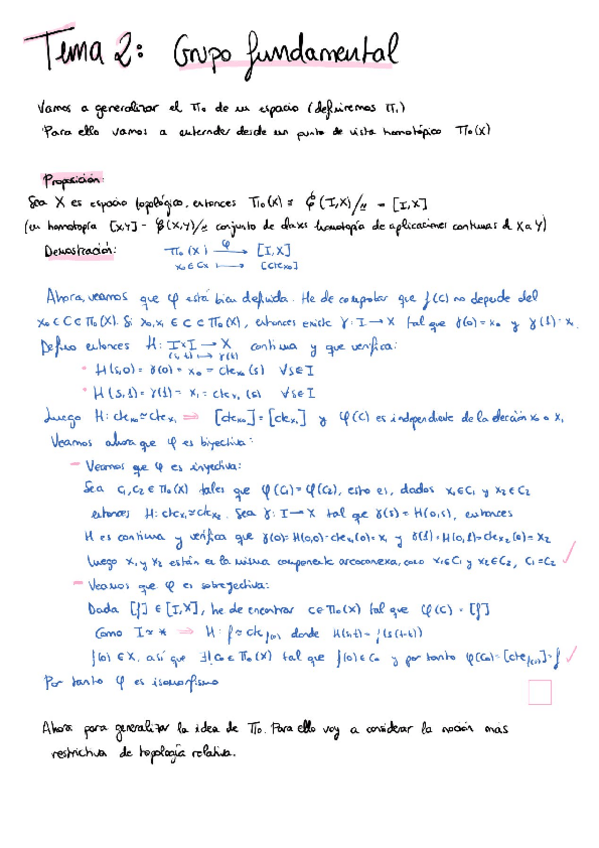 Tema 2: Grupo fundamental
Vamos a generalizar el π₀ de un espacio (definiremos π₁)
Para ello vamos a entender desde un punto de vista homotópico π₀(X)
Proposición:
Sea X es espacio topológico, entonces π₀(X) ≅ 𝒞(I,X)/≃ = [I,X]
(en homotopía [X,Y] = 𝒞(X,Y)/≃ conjunto de clases homotopía de aplicaciones continuas d X a Y)
Demostración: π₀(X) —φ→ [I,X]
x₀∈Cx ⟼ [cte_x₀]
Ahora, veamos que φ está bien definida. He de comprobar que f(C) no depende del
x₀∈C∈π₀(X). Si x₀,x₁ ∈ C ∈ π₀(X), entonces existe γ: I→X tal que γ(0)=x₀ y γ(1)=x₁
Defino entonces H: I×I → X continua y que verifica:
(s,t) ⟼ γ(t)
• H(s,0)=γ(0)=x₀=cte_x₀(s) ∀s∈I
• H(s,1)=γ(1)=x₁=cte_x₁(s) ∀s∈I
Luego H: cte_x₀≃cte_x₁ ⇒ [cte_x₀]=[cte_x₁] y φ(C) es independiente de la elección x₀ o x₁
Veamos ahora que φ es biyectiva:
– Veamos que φ es inyectiva:
Sea C₁,C₂∈π₀(X) tales que φ(C₁)=φ(C₂), esto es, dados x₁∈C₁ y x₂∈C₂
entonces H: cte_x₁≃cte_x₂. Sea γ: I→X tal que γ(s)=H(0,s), entonces
H es continua y verifica que γ(0)=H(0,0)=cte_x₁(0)=x₁ y γ(1)=H(0,1)=cte_x₂(0)=x₂
Luego x₁ y x₂ están en la misma componente arcoconexa, como x₁∈C₁ y x₂∈C₂, C₁=C₂ ✓
– Veamos que φ es sobreyectiva:
Dada [f]∈[I,X], he de encontrar C∈π₀(X) tal que φ(C)=[f]
Como I≃* ⇒ H: f≃cte_f(0) donde H(s,t)=f(s(1-t))
f(0)∈X, así que ∃! C₀∈π₀(X) tal que f(0)∈C₀ y por tanto φ(C₀)=[cte_f(0)]=f ✓
Por tanto φ es isomorfismo
Ahora para generalizar la idea de π₀. Para ello voy a considerar la noción más
restrictiva de topología relativa.